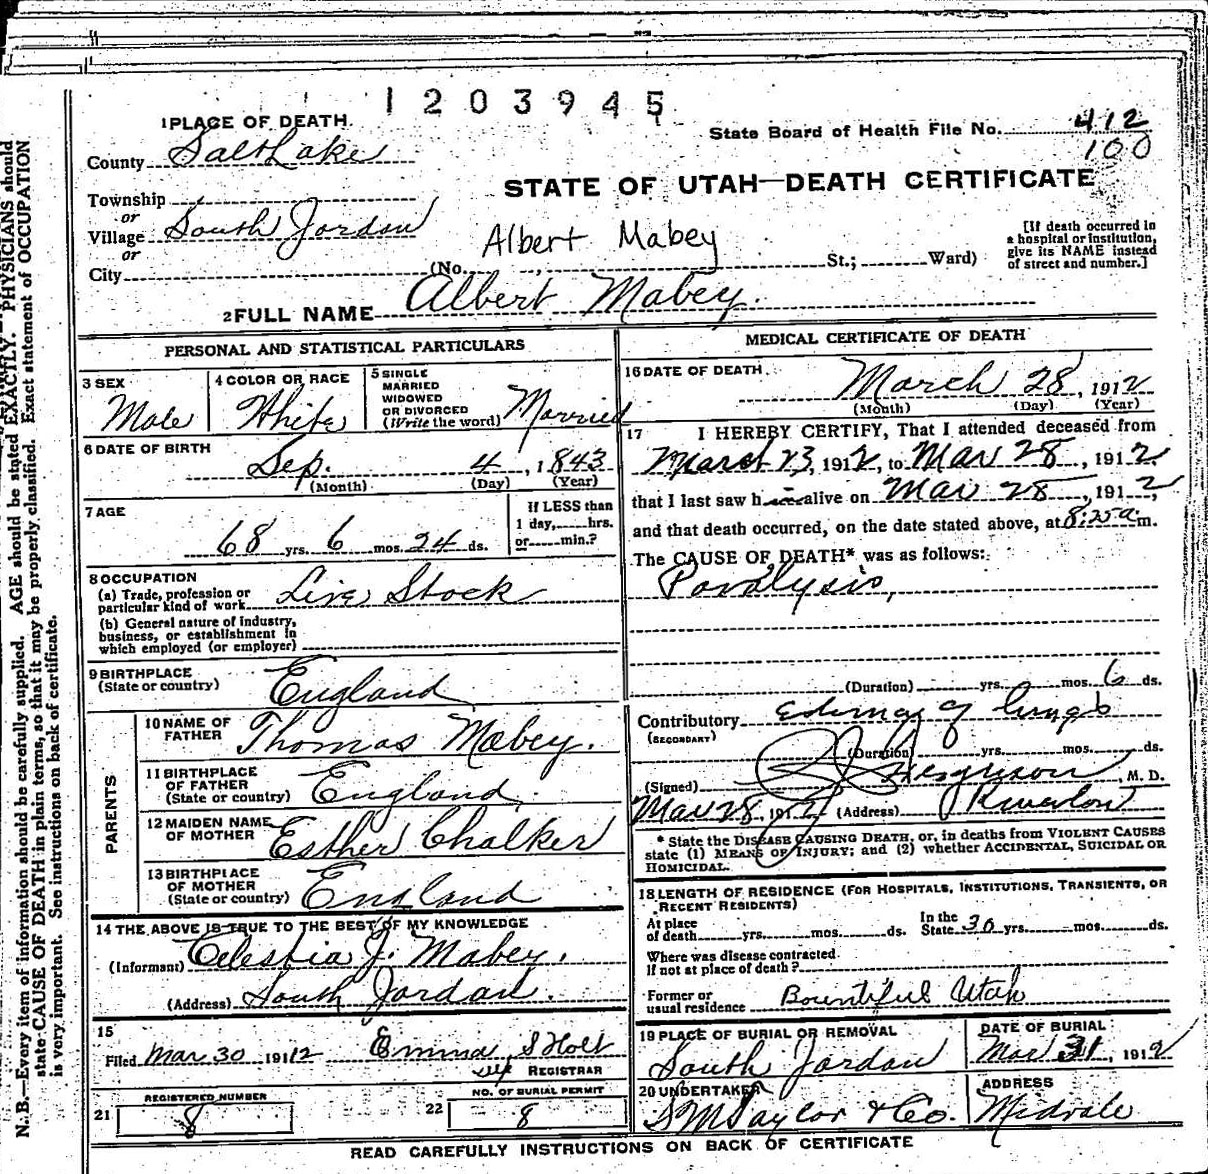 1203945
1 PLACE OF DEATH.
State Board of Health File No. 412
100
County Salt Lake
STATE OF UTAH—DEATH CERTIFICATE
Township
or
Village South Jordan
or
City
Albert Mabey
(No. St.; Ward)
[If death occurred in
a hospital or institution,
give its NAME instead
of street and number.]
2 FULL NAME Albert Mabey.
PERSONAL AND STATISTICAL PARTICULARS
3 SEX
Male
4 COLOR OR RACE
White
5 SINGLE
MARRIED
WIDOWED
OR DIVORCED
(Write the word) Married
6 DATE OF BIRTH
Sep. 4, 1843
(Month) (Day) (Year)
7 AGE
68 yrs. 6 mos. 24 ds.
If LESS than
1 day, hrs.
or min.?
8 OCCUPATION
(a) Trade, profession or
particular kind of work Live Stock
(b) General nature of industry,
business, or establishment in
which employed (or employer)
9 BIRTHPLACE
(State or country) England
PARENTS
10 NAME OF
FATHER Thomas Mabey.
11 BIRTHPLACE
OF FATHER
(State or country) England
12 MAIDEN NAME
OF MOTHER Esther Chalker
13 BIRTHPLACE
OF MOTHER
(State or country) England
14 THE ABOVE IS TRUE TO THE BEST OF MY KNOWLEDGE
(Informant) Celestia J. Mabey.
(Address) South Jordan.
15
Filed Mar 30 1912 Emma S Holt
REGISTRAR
21 REGISTERED NUMBER
8
22 NO. OF BURIAL PERMIT
8
MEDICAL CERTIFICATE OF DEATH
16 DATE OF DEATH
March 28, 1912
(Month) (Day) (Year)
17 I HEREBY CERTIFY, That I attended deceased from
March 23, 1912, to Mar 28, 1912,
that I last saw him alive on Mar 28, 1912,
and that death occurred, on the date stated above, at 8:25 a m.
The CAUSE OF DEATH* was as follows:
Paralysis,
(Duration) yrs. mos. 6 ds.
Contributory Edema of lungs
(SECONDARY)
(Duration) yrs. mos. ds.
(Signed) Ferguson, M. D.
Mar 28, 1912 (Address) Riverton
* State the DISEASE CAUSING DEATH, or, in deaths from VIOLENT CAUSES
state (1) MEANS OF INJURY; and (2) whether ACCIDENTAL, SUICIDAL OR
HOMICIDAL.
18 LENGTH OF RESIDENCE (FOR HOSPITALS, INSTITUTIONS, TRANSIENTS, OR
RECENT RESIDENTS)
At place
of death yrs. mos. ds.
In the
State 30 yrs. mos. ds.
Where was disease contracted
if not at place of death?
Former or
usual residence Bountiful Utah
19 PLACE OF BURIAL OR REMOVAL
South Jordan
DATE OF BURIAL
Mar 31, 1912
20 UNDERTAKER
S M Taylor & Co.
ADDRESS
Midvale
READ CAREFULLY INSTRUCTIONS ON BACK OF CERTIFICATE
N. B.—Every item of information should be carefully supplied. AGE should be stated EXACTLY. PHYSICIANS should
state CAUSE OF DEATH in plain terms, so that it may be properly classified. Exact statement of OCCUPATION
is very important. See instructions on back of certificate.